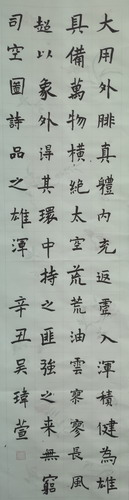 大用外腓真體内充返虛入渾積健為雄
具備萬物橫絕太空荒荒油雲寥寥長風
超以象外得其環中持之匪強之來無窮
司空圖詩品之雄渾 辛丑吳瑋萱